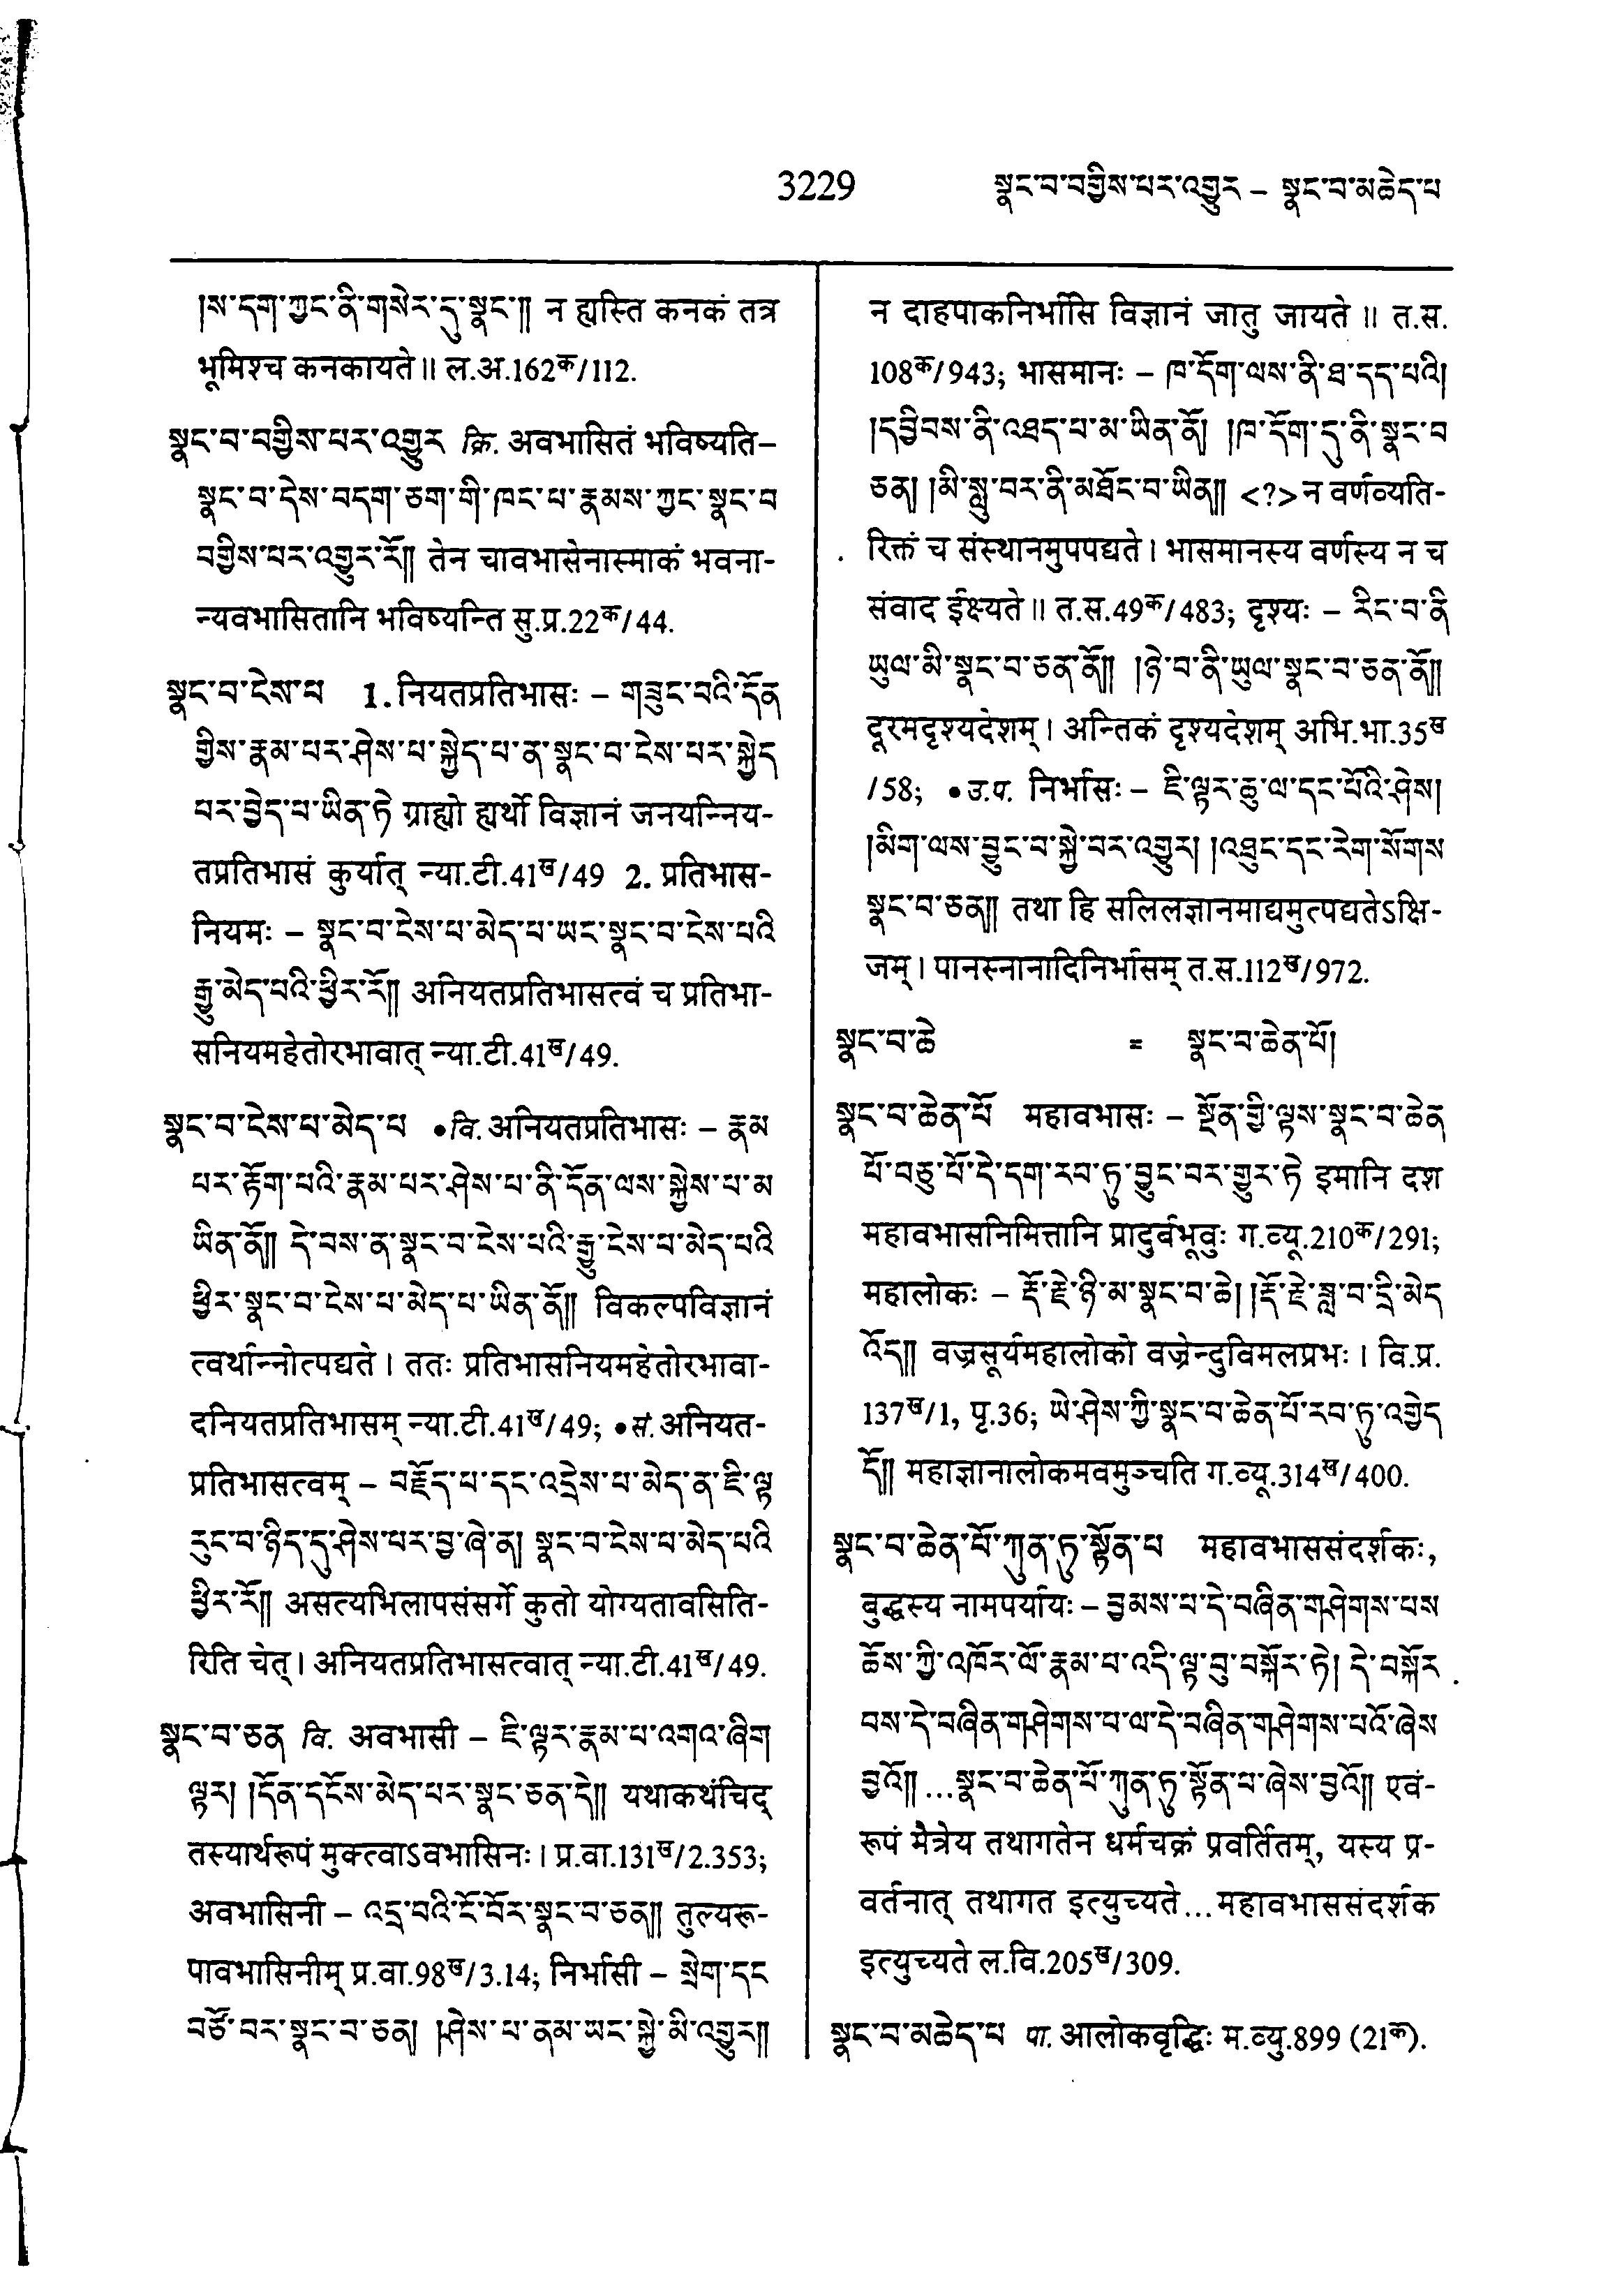 3229
སྣང་བ་བགྱིས་པར་འགྱུར – སྣང་བ་མཆེད་པ
།ས་དག་ཀྱང་ནི་གསེར་དུ་སྣང་༎ न ह्यस्ति कनकं तत्र
भूमिश्च कनकायते॥ ल.अ.162क/112.
སྣང་བ་བགྱིས་པར་འགྱུར क्रि. अवभासितं भविष्यति–
སྣང་བ་དེས་བདག་ཅག་གི་ཁང་པ་རྣམས་ཀྱང་སྣང་བ
བགྱིས་པར་འགྱུར་རོ༎ तेन चावभासेनास्माकं भवना-
न्यवभासितानि भविष्यन्ति सु.प्र.22क/44.
སྣང་བ་ངེས་པ 1.नियतप्रतिभासः – གཟུང་བའི་དོན
གྱིས་རྣམ་པར་ཤེས་པ་སྐྱེད་པ་ན་སྣང་བ་ངེས་པར་སྐྱེད
པར་བྱེད་པ་ཡིན་ཏེ ग्राह्यो ह्यर्थो विज्ञानं जनयन्निय-
तप्रतिभासं कुर्यात् न्या.टी.41ख/49 2. प्रतिभास-
नियमः – སྣང་བ་ངེས་པ་མེད་པ་ཡང་སྣང་བ་ངེས་པའི
རྒྱུ་མེད་པའི་ཕྱིར་རོ༎ अनियतप्रतिभासत्वं च प्रतिभा-
सनियमहेतोरभावात् न्या.टी.41ख/49.
སྣང་བ་ངེས་པ་མེད་པ •वि. अनियतप्रतिभासः – རྣམ
པར་རྟོག་པའི་རྣམ་པར་ཤེས་པ་ནི་དོན་ལས་སྐྱེས་པ་མ
ཡིན་ནོ༎ དེ་བས་ན་སྣང་བ་ངེས་པའི་རྒྱུ་ངེས་པ་མེད་པའི
ཕྱིར་སྣང་བ་ངེས་པ་མེད་པ་ཡིན་ནོ༎ विकल्पविज्ञानं
त्वर्थान्नोत्पद्यते। ततः प्रतिभासनियमहेतोरभावा-
दनियतप्रतिभासम् न्या.टी.41ख/49; •सं. अनियत-
प्रतिभासत्वम् – བརྗོད་པ་དང་འདྲེས་པ་མེད་ན་ཇི་ལྟ
རུང་བ་ཉིད་དུ་ཤེས་པར་བྱ་ཞེ་ན། སྣང་བ་ངེས་པ་མེད་པའི
ཕྱིར་རོ༎ असत्यभिलापसंसर्गे कुतो योग्यतावसिति-
रिति चेत्। अनियतप्रतिभासत्वात् न्या.टी.41ख/49.
སྣང་བ་ཅན वि. अवभासी – ཇི་ལྟར་རྣམ་པ་འགའ་ཞིག
ལྟར། །དོན་དངོས་མེད་པར་སྣང་ཅན་དེ༎ यथाकथंचिद्
तस्यार्थरूपं मुक्त्वाऽवभासिनः। प्र.वा.131ख/2.353;
अवभासिनी – འདྲ་བའི་ངོ་བོར་སྣང་བ་ཅན༎ तुल्यरू-
पावभासिनीम् प्र.वा.98ख/3.14; निर्भासी – སྲེག་དང
བཙོ་བར་སྣང་བ་ཅན། །ཤེས་པ་ནམ་ཡང་སྐྱེ་མི་འགྱུར༎
न दाहपाकनिर्भासि विज्ञानं जातु जायते॥ त.स.
108क/943; भासमानः – ཁ་དོག་ལས་ནི་ཐ་དད་པའི།
།དབྱིབས་ནི་འཐད་པ་མ་ཡིན་ནོ། །ཁ་དོག་དུ་ནི་སྣང་བ
ཅན། །མི་སླུ་བར་ནི་མཐོང་བ་ཡིན༎ <?> न वर्णव्यति-
रिक्तं च संस्थानमुपपद्यते। भासमानस्य वर्णस्य न च
संवाद ईक्ष्यते॥ त.स.49क/483; दृश्यः – རིང་བ་ནི
ཡུལ་མི་སྣང་བ་ཅན་ནོ༎ །ཉེ་བ་ནི་ཡུལ་སྣང་བ་ཅན་ནོ༎
दूरमदृश्यदेशम्। अन्तिकं दृश्यदेशम् अभि.भा.35ख
/58; •उ.प. निर्भासः – ཇི་ལྟར་ཆུ་ལ་དང་པོའི་ཤེས།
།མིག་ལས་བྱུང་བ་སྐྱེ་བར་འགྱུར། །འཐུང་དང་རེག་སོགས
སྣང་བ་ཅན༎ तथा हि सलिलज्ञानमाद्यमुत्पद्यतेऽक्षि-
जम्। पानस्नानादिनिर्भासम् त.स.112ख/972.
སྣང་བ་ཆེ = སྣང་བ་ཆེན་པོ།
སྣང་བ་ཆེན་པོ महावभासः – སྔོན་གྱི་ལྟས་སྣང་བ་ཆེན
པོ་བཅུ་པོ་དེ་དག་རབ་ཏུ་བྱུང་བར་གྱུར་ཏེ इमानि दश
महावभासनिमित्तानि प्रादुर्बभूवुः ग.व्यू.210क/291;
महालोकः – རྡོ་རྗེ་ཉི་མ་སྣང་བ་ཆེ། །རྡོ་རྗེ་ཟླ་བ་དྲི་མེད
འོད༎ वज्रसूर्यमहालोको वज्रेन्दुविमलप्रभः। वि.प्र.
137ख/1, पृ.36; ཡེ་ཤེས་ཀྱི་སྣང་བ་ཆེན་པོ་རབ་ཏུ་འགྱེད
དོ༎ महाज्ञानालोकमवमुञ्चति ग.व्यू.314ख/400.
སྣང་བ་ཆེན་པོ་ཀུན་ཏུ་སྟོན་པ महावभाससंदर्शकः,
बुद्धस्य नामपर्यायः – བྱམས་པ་དེ་བཞིན་གཤེགས་པས
ཆོས་ཀྱི་འཁོར་ལོ་རྣམ་པ་འདི་ལྟ་བུ་བསྐོར་ཏེ། དེ་བསྐོར
བས་དེ་བཞིན་གཤེགས་པ་ལ་དེ་བཞིན་གཤེགས་པའོ་ཞེས
བྱའོ༎ ...སྣང་བ་ཆེན་པོ་ཀུན་ཏུ་སྟོན་པ་ཞེས་བྱའོ༎ एवं-
रूपं मैत्रेय तथागतेन धर्मचक्रं प्रवर्तितम्, यस्य प्र-
वर्तनात् तथागत इत्युच्यते...महावभाससंदर्शक
इत्युच्यते ल.वि.205ख/309.
སྣང་བ་མཆེད་པ पा. आलोकवृद्धिः म.व्यु.899 (21क).